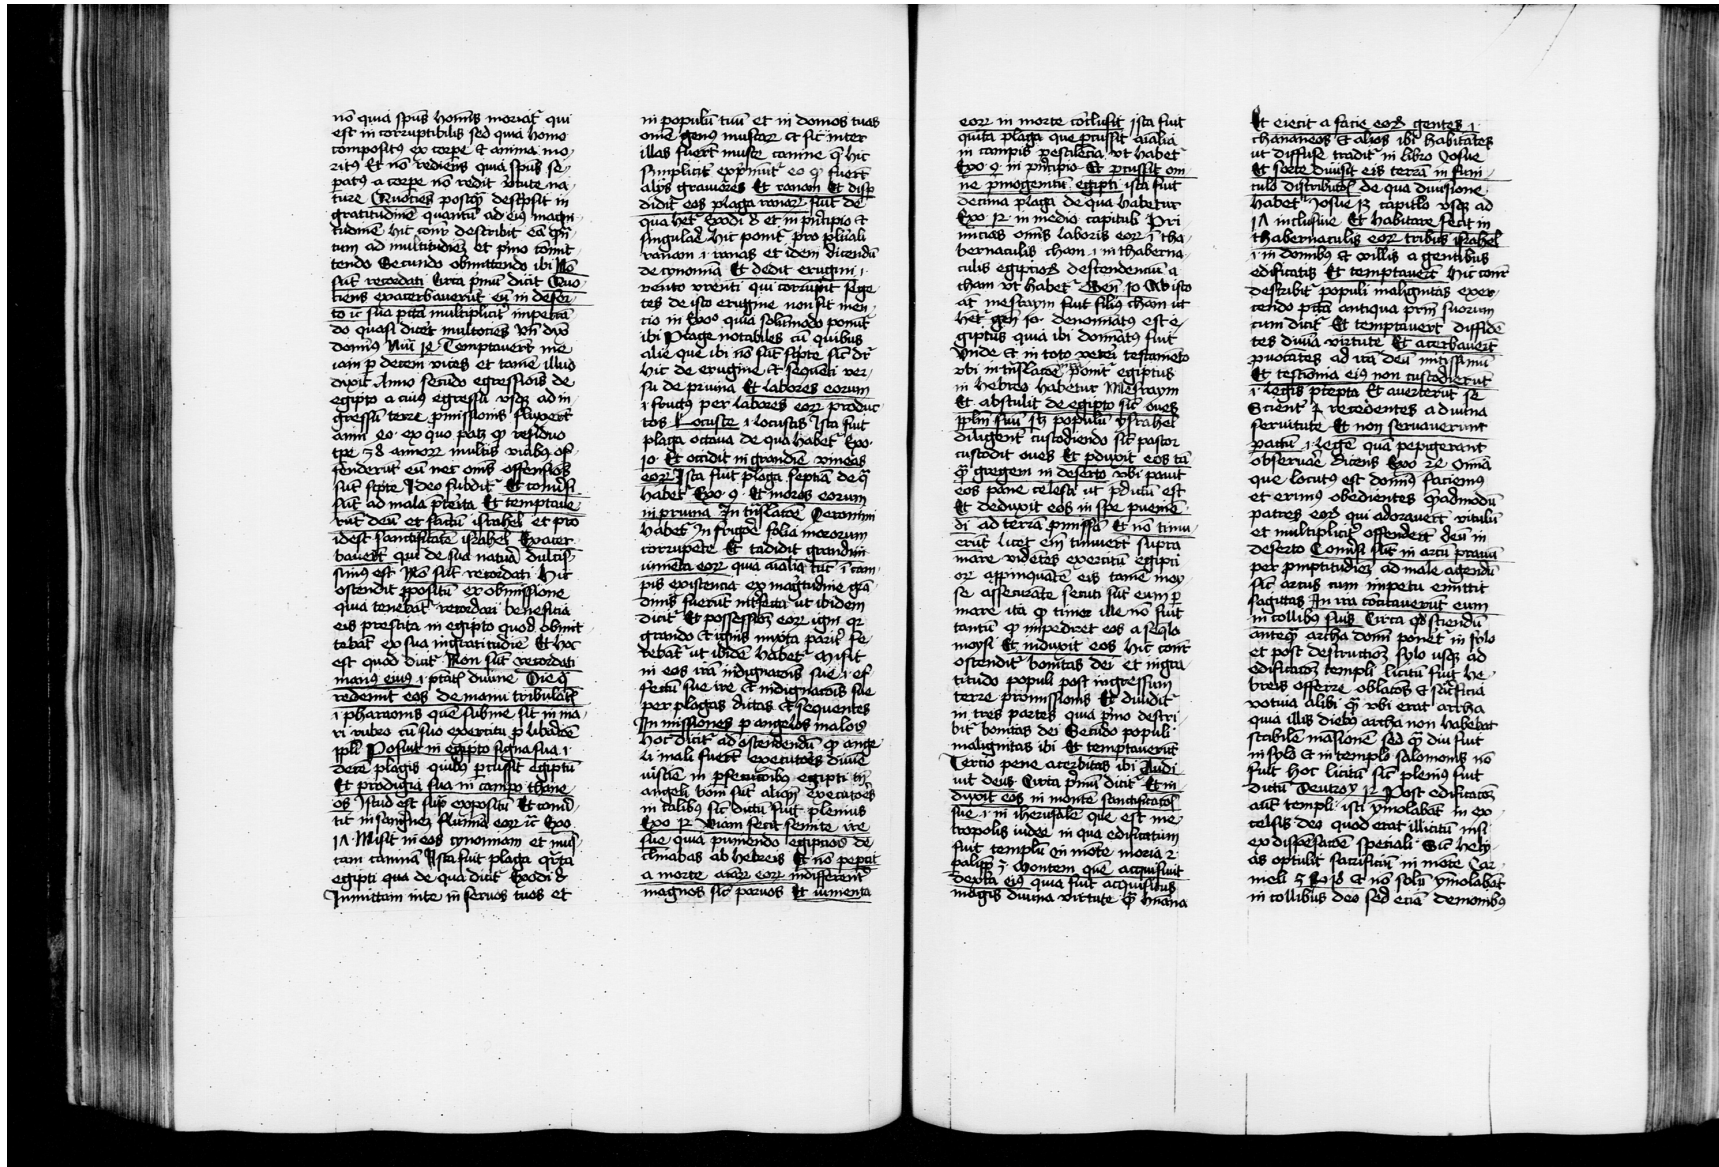 nō quia spūs homīs moriat̄ qui
est in corruptibilis sed quia homo
compositꝰ ex corpe et anima mo-
ritꝰ Et nō rediens quia spūs se-
patꝰ a corpe nō redit v̄tute na-
ture Quoties postꝙ descpsit in
gratitudinē quantū ad eiꝰ magni-
tudinē hic cont̄ describit eā qn̄-
tum ad multitudīeꝫ et pͥmo comit-
tendo Secundo obmittendo ibi Nō
sūt recordati Circa pͥmū dicit Quo-
ciens exacerbauerūt eū in deser-
to ic sua pctā multiplicit̄ impetrā-
do quasi dic̄et multociens vn̄ dixͭ
domīꝰ Nūi 14 Temptauerūt me
iam ꝑ decem vices et tamē illud
dixit Anno secūdo egressiois de
egipto a cuiꝰ egressu vsqꝫ ad in-
gressū terre ꝓmissionis fluxerūt
anni 40 ex quo patꝫ ꝙ residuo
tp̄e 38 annoꝝ multis vicibꝰ of-
fenderūt eū nec om̄s offensiōs
sūt scpte Ideo subdit̄ Et conūsi
sūt ad mala p̄terita Et temptaue-
rūt deū et sāctū israhel et pro
idest sanctificatē israhel Exacer-
bauerūt qui de sua natura dulcis-
simꝰ est Nō sūt recordati Hic
ostendit ꝓpositū ex obmissione
quia tenebāt̄ recordari beneficia
eis prestita in egipto quod obmit-
tebāt ex sua ingratitudīe Et hoc
est quod dicit̄ Non sūt recordati
manꝰ eiꝰ .i. ptātꝭ diuine Die qͣ
redemit eos de manu tribulātꝭ
.i. pharaonis quē submersit in ma-
ri rubeo cū suo exercitu ꝑ libācōē
ppl̄i Posuit in egipto signa sua .i.
dec̄ē plagis quibꝰ ꝑcussit egiptū
Et prodigia sua in campo thane-
os Istud est supͣ expositū Et conū-
tit in sanguīeꝫ flumīa eoꝝ ⁊c̄ Exo
17 Misit in eos cynomiam et mus-
cam caninā Ista fuit plaga qͣrta
egipti qua de qua dicit̄ Exodi 8
Inmittam inte in seruos tuos et
in populū tuū et in domos tuas
om̄e genꝰ muscaꝝ et sic inter
illas fuerūt musce canine qͣ hic
simplicit̄ exp̄mūt̄ eo ꝙ fuerūt
alijs grauiores Et ranam et disp̄-
didit eos plaga ranaꝝ fuit de
qua het̄ Exodi 8 et in pͥncipio et
singular̄ hic ponit̄ pro pl̄urali
ranam .i. ranas et idem dicendū
de cynomia Et dedit erugini .i.
vento vrenti qui corrūpit sege-
tes de isto erugine non fit men-
cio in Exoͦ quia solūmodo ponūt̄
ibi plage notabiles cū quibus
alie que ibi nō sūt scpte sīc dr̄
hic de erugine et sequēti ver-
su de pruina Et labores eorum
.i. fructꝰ per labores eoꝝ produc-
tos Locuste .i. locustis Ista fuit
plaga octaua de qua habet̄ Exo-
10 Et occidit in grandīe vineas
eoꝝ Ista fuit plaga septīa de qͣ
habet̄ Exo 9 Et moros eorum
in pruina In trn̄slacōe Jeronimi
habet̄ In frigoꝝ folia mororum
corrupēte Et tradidit grandini
iumēta eoꝝ quia aīalia tūc ī cam-
pis existencia ex magitudine grā-
dinis fuerūt int̄fecta ut ibidem
dicit̄ Et possessiōꝫ eoꝝ igni qꝛ
grando et ignis mixta parit̄ fe-
rebāt̄ ut ibidē habet̄ Misit
in eos irā indignacōis sue .i. ef-
fectū sue ire et indignacois sue
per plagas dictas et sequentes
In missiones ꝑ angelos malos
Hoc dicit̄ ad ostendendū ꝙ ange-
li mali fuerūt executores diuīe
iusticie in ꝑsecutoribꝰ egipti tn̄
angeli boni sūt aliqn̄ executores
in talibꝰ sic dictū fuit plenius
Exo 12 Viam fecit semite ire
sue quia puniendo egipcios de-
clinabas ab hebreis Et nō pepcit
a morte aīaꝝ eoꝝ indifferent̄
magnos sīc paruos Et iumenta
eoꝝ in morte cōclusit ista fuit
quīta plaga que ꝑcussit aīalia
in campis pestilēcia vt habet̄
Exo 9 in pͥncipio Et ꝑcussit om-
ne pͥmogenitū egipti ista fuit
decima plaga de qua habetur
Exo 12 in medio capituli Pri-
micias omīs laboris eoꝝ ī tha-
bernaculis cham .i. in thaberna-
culis egiptioꝝ descendenciū a
cham vt habet̄ Gen̄ 10 Ab isto
aūt mesraym fuit filiꝰ cham ut
het̄ gen̄ 10 denomīatꝰ est e-
giptus quia ibi domīatꝰ fuit
Vnde et in toto veteri testamēto
vbi in trn̄slacōe nr̄a ponit̄ egiptus
in hebreo habetur Mesraym
Et abstulit de egipto sīc oues
pp̄lm̄ suū sꝫ populū ysrahel
diligent̄ custodiendo sīc pastor
custodit oues Et ꝑduxit eos tā-
qͣ gregem in deserto vbi pauit
eos pane celesti ut p̄dictū est
Et deduxit eos in spe pueniē-
di ad terrā ꝓmissā Et nō timu-
erūt licet em̄ timuerūt supra
mare vidētes exercitū egipci-
oꝝ appinquātē eis tamē moy-
se assecurāte secuti sūt eum ꝑ
mare ita ꝙ timor ille nō fuit
tantū ꝙ impedret eos a seq̄la
moysi Et induxit eos Hic cont̄
ostendit̄ bonitas dei et ingra-
titudo populi post ingressum
terre promissionis Et diuidit̄
in tres partes quia pͥmo descri-
bit̄ bonitas dei Secūdo populi
malignitas ibi Et temptauerūt
Tercio pene acerbitas ibi Audi-
uit deus Circa pͥmū dicit̄ Et in-
duxit eos in monte sanctificatoīs
sue .i. in iherusale que est me-
tropolis iudee in qua edificatum
fuit templū In mōte moria 2
paliꝑ 3 Montem quē acquisiuit
dextra eiꝰ quia fuit acquisitus
magis diuina virtute qͣ hūana
Et eiecit a facie eoꝝ gentes .i.
chananeos et alios ibi habitātes
ut diffuse tradit̄ in libro Josue
Et sorte diuisit eis terrā in funi-
culo distributoīs de qua diuisione
habet̄ Josue 13 capitlo vsqꝫ ad
17 inclusiue Et habitare fecit in
thabernaculis eoꝝ tribus isrāhel
.i. in domibꝰ et villis a gentibus
edificatis Et temptauerūt Hic cont̄
describit̄ populi malignitas exer-
cendo pctā antiqua prm̄ suorum
cum dicit̄ Et temptauerūt diffidē-
tes diuīa virtute Et acerbauerūt
puocātes ad irā deū mitissimū
Et testīonia eiꝰ non custodierūt
.i. legis p̄cepta Et auerterūt se
Scienter recedentes a diuina
seruitute Et non seruauerunt
pactū .i. legē quā pepigerant
obseruare dicens Exo 24 Oīnia
que locutus est domīꝰ faciemus
et erimus obedientes Quēadmodū
patres eoꝝ qui adorauerūt vitulū
et multiplicit̄ offenderūt deū in
deserto Conūsi sūt in arcū prauū
per pmptitudīeꝫ ad male agendū
sīc arcus cum impetu emittit
sagittas In irā cōcitauerūt eum
in collibus suis Circa qd̄ sciendū
anteqͣ archa domī poneret̄ in sylo
et post destructiōꝫ sylo usqꝫ ad
edificatoꝫ templi licitū fuit he-
breis offerre oblatoēs et sacͥficia
votiua alibi qͣ vbi erat archa
quia illis diebꝰ archa non habebat
stabilē mansionē sed qͣ diu fuit
in sylo et in templo salomonis nō
fuit hoc licitū sīc plenius fuit
dictū Deutroꝫ 12 Post edificatoꝫ
aūt templi isti ymolabāt in ex-
celsis deo quod erat illicitū nisi
ex dispēsatoē speciali Sic hely-
as optulit sacrificiū in mōte Car-
meli 3 Rͤ 18 et nō solū ymolabāt
in collibus deo sed eciā demonibꝰ